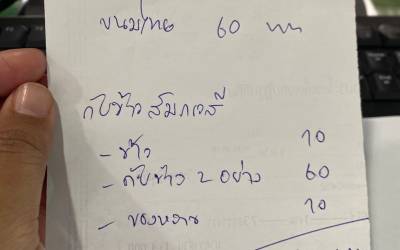 ขนมไทย 60 บาท
กับข้าว สัมภเวสี
- ข้าว 10
- กับข้าว 2 อย่าง 60
- ของหวาน 10